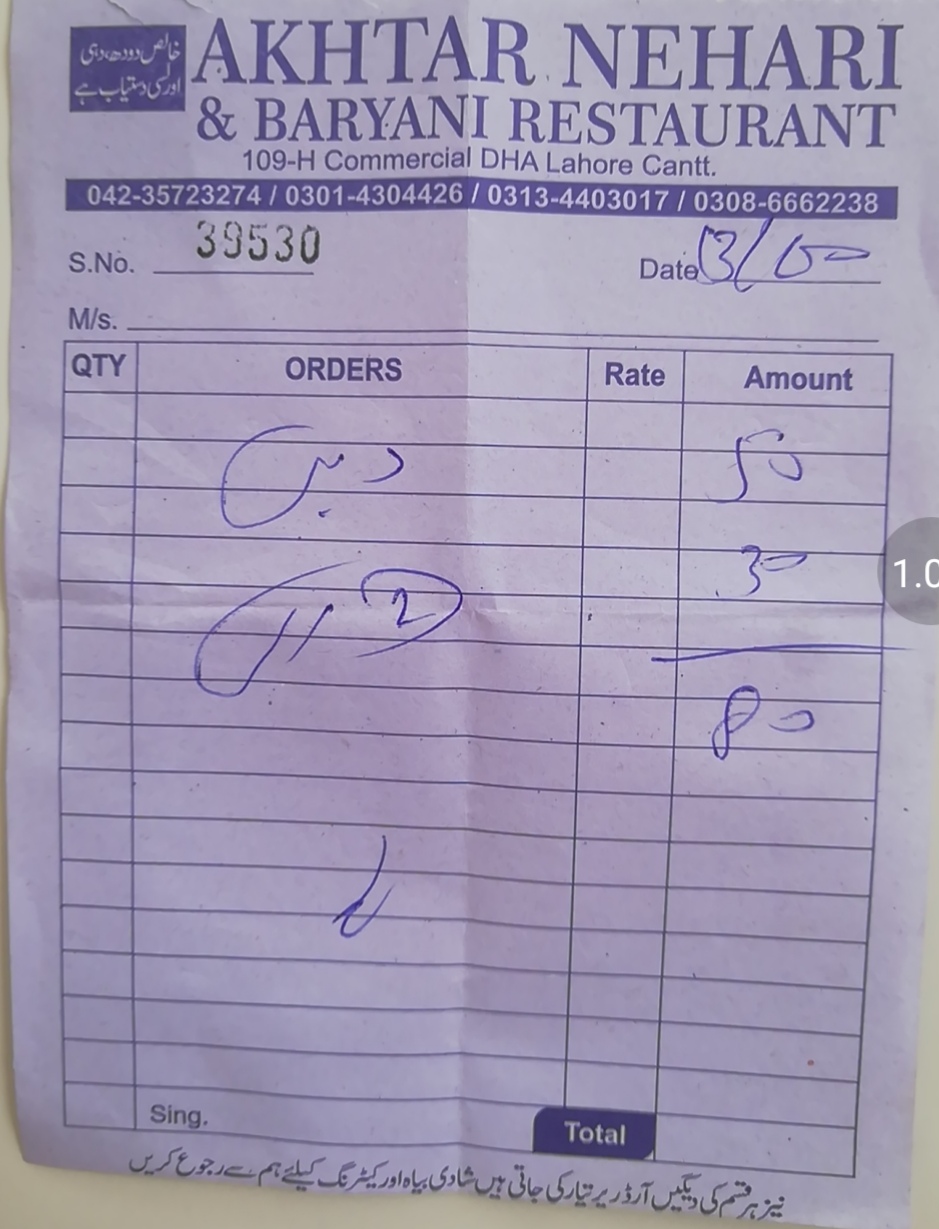 خالص دودھ، دہی
اور لسی دستیاب ہے
AKHTAR NEHARI
& BARYANI RESTAURANT
109-H Commercial DHA Lahore Cantt.
042-35723274 / 0301-4304426 / 0313-4403017 / 0308-6662238
S.No. 39530 Date
M/s.
QTY ORDERS Rate Amount
50
2 30
80
Sing. Total
نیز ہر قسم کی دیگیں آرڈر پر تیار کی جاتی ہیں شادی بیاہ اور کیٹرنگ کیلئے ہم سے رجوع کریں
1.0